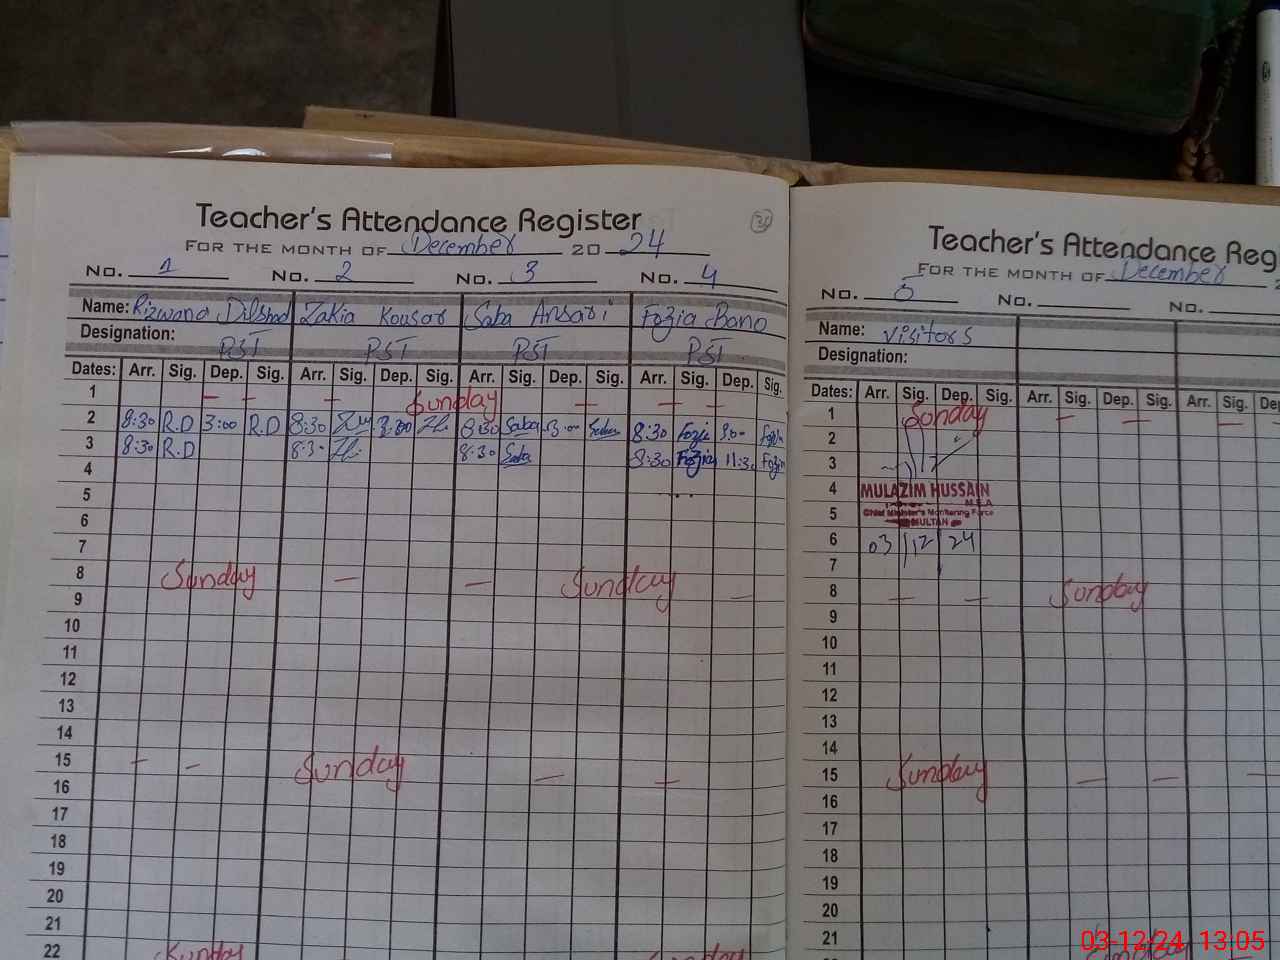 Teacher's Attendance Register
FOR THE MONTH OF December 20 24
No. 1 No. 2 No. 3 No. 4
Name: Rizwana Dilshad Zakia Kousar Saba Ansari Fozia Bano
Designation: PST PST PST PST
Dates: Arr. Sig. Dep. Sig. Arr. Sig. Dep. Sig. Arr. Sig. Dep. Sig. Arr. Sig. Dep. Sig.
1 Sunday
2 8:30 R.D 3:00 R.D 8:30 3:00 8:30 Saba 3:00 8:30 Fozia 3:00 Fozia
3 8:30 R.D 8:30 8:30 Saba 8:30 Fozia 11:30 Fozia
4
5
6
7
8 Sunday Sunday
9
10
11
12
13
14
15 Sunday
16
17
18
19
20
21
22 Sunday Sunday
Teacher's Attendance Reg
FOR THE MONTH OF December
No. 5 No. No.
Name: Visitors
Designation:
Dates: Arr. Sig. Dep. Sig. Arr. Sig. Dep. Sig. Arr. Sig. De
1 Sunday
2
3
4 MULAZIM HUSSAIN
M.E.A
5 Chief Minister's Monitoring Force
MULTAN
6 03/12/24
7
8 Sunday
9
10
11
12
13
14
15 Sunday
16
17
18
19
20
21
03-12-24 13:05